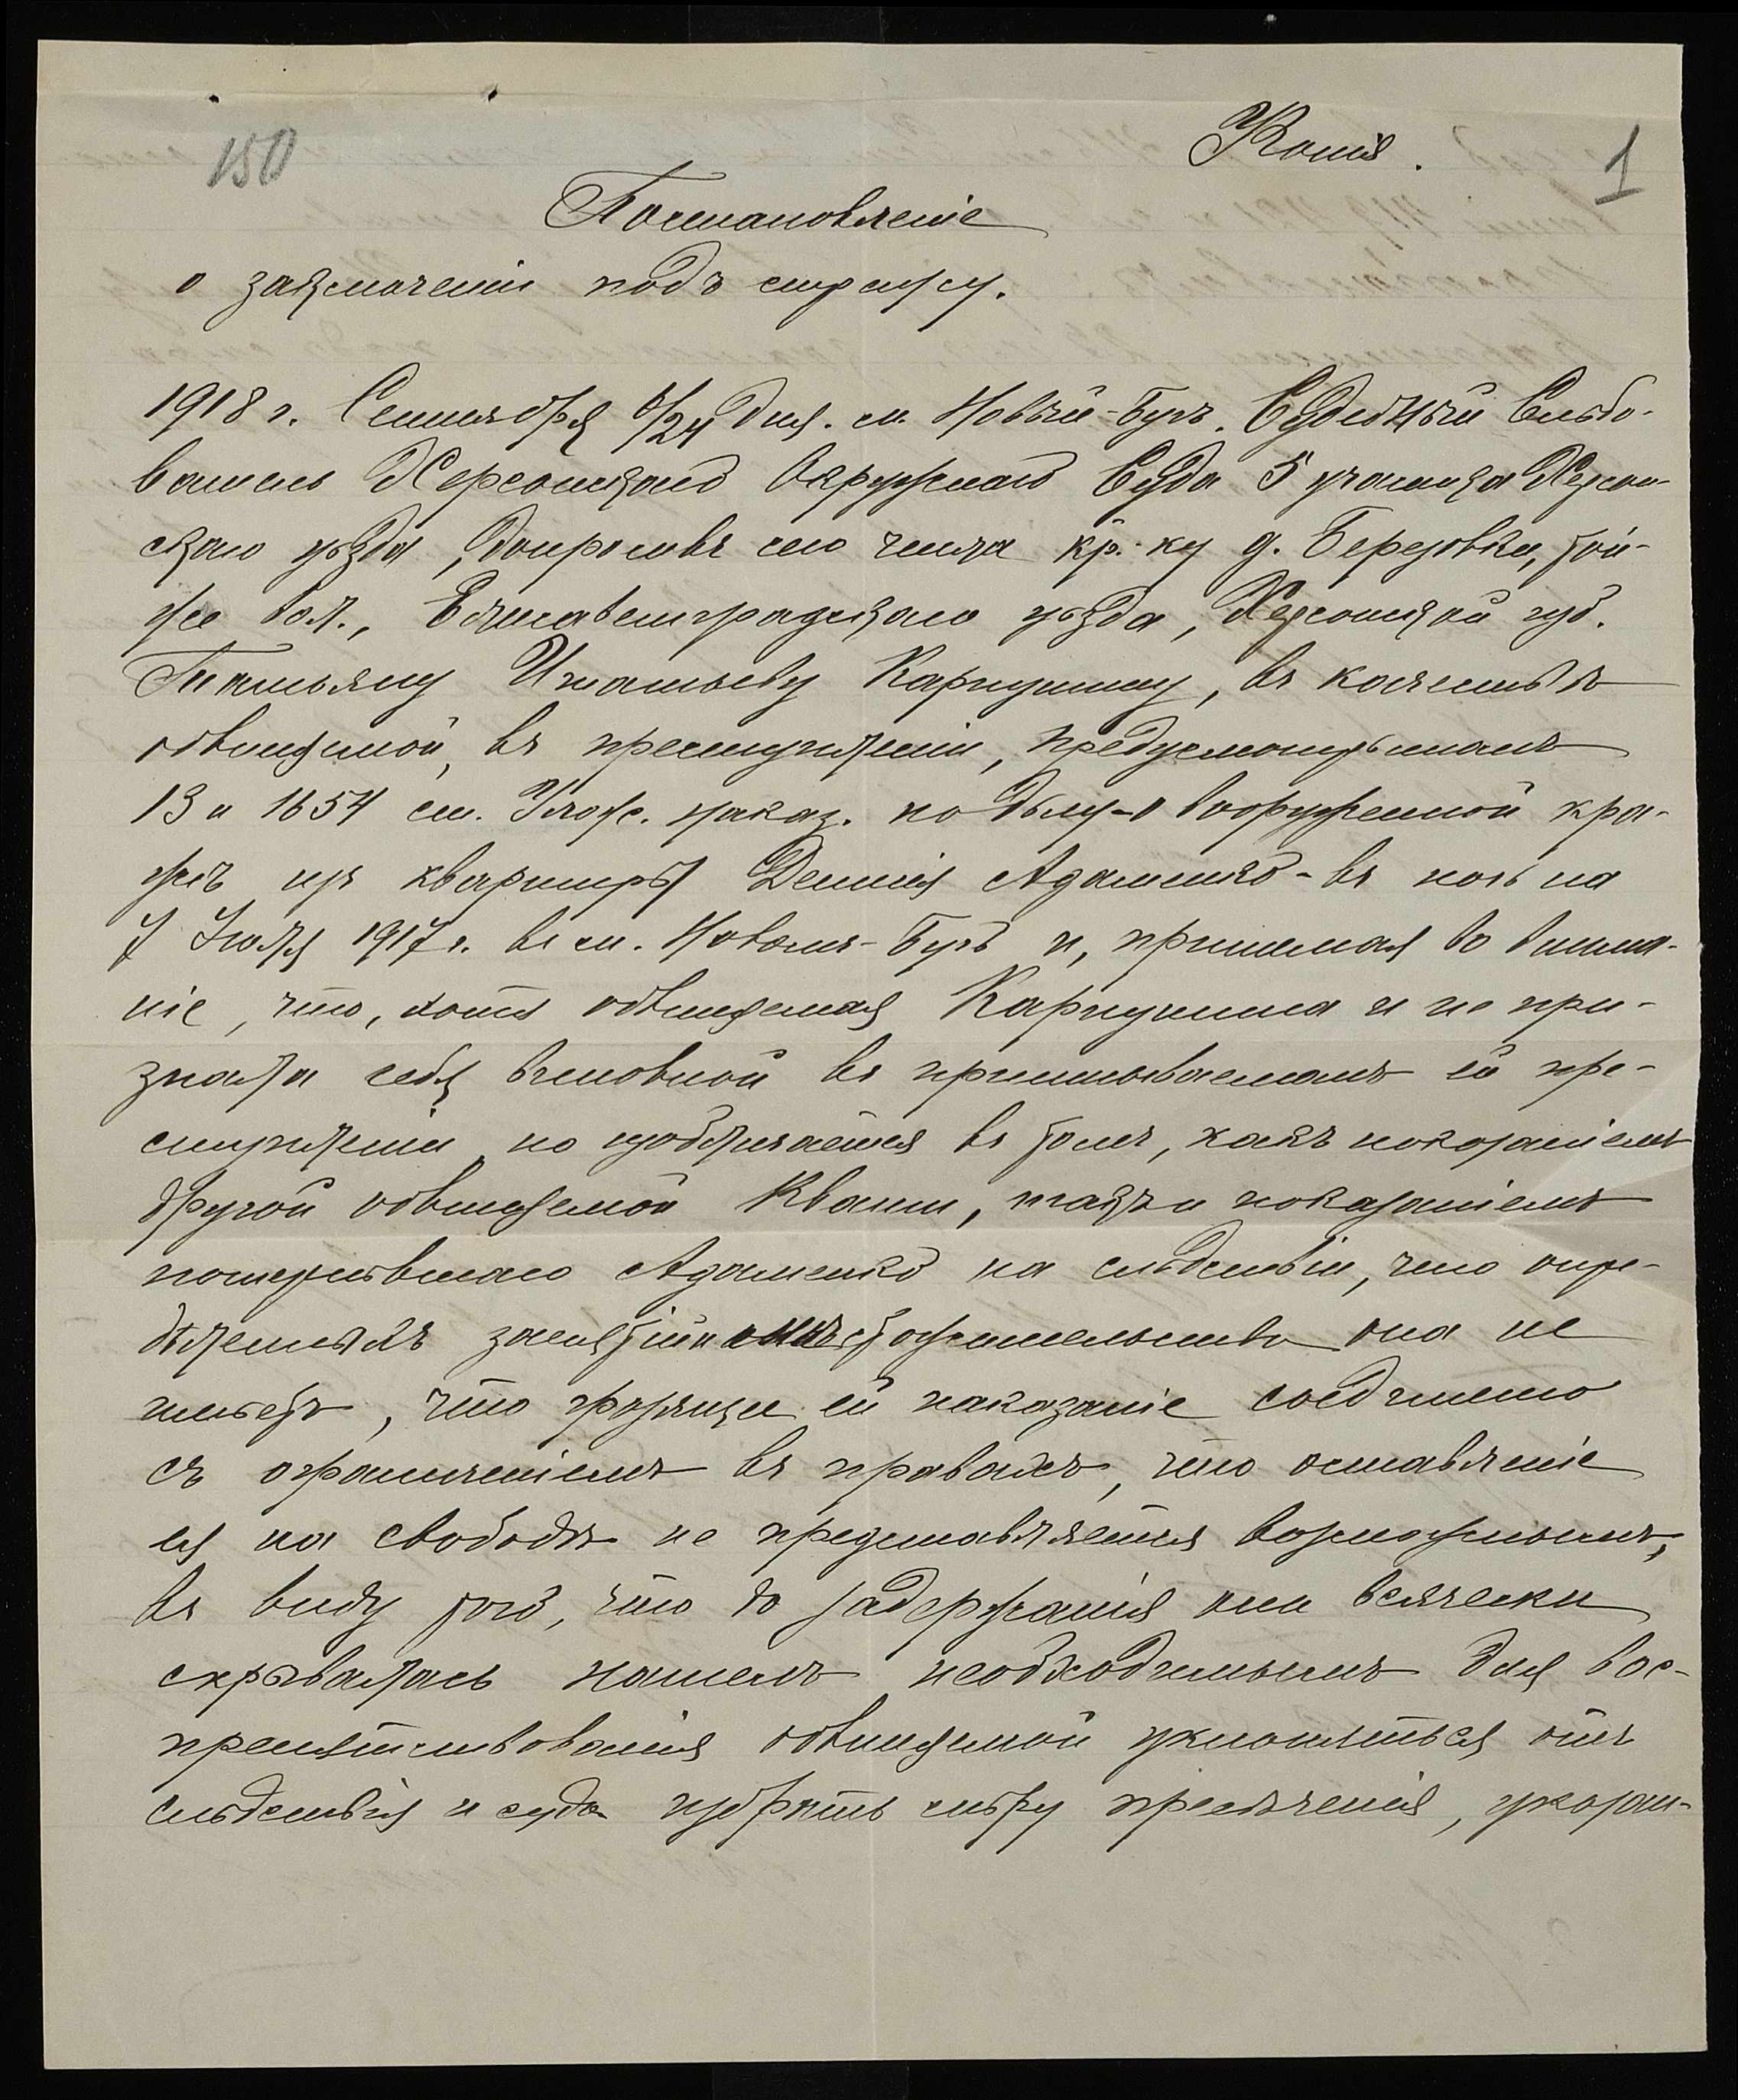 150
Копія.
1
Постановленіе
о заключеніи подъ стражу.
1918 г. Сентября 6/24 дня. м. Новый-Бугъ. Судебный Слѣдо-
ватель Херсонскаго Окружнаго Суда 5 участка Херсон-
скаго уѣзда, допросивъ сего числа кр.-ку д. Березовки, той-
же вол., Елисаветградскаго уѣзда, Херсонской губ.
Татьяну Игнатьеву Карпушину, въ качествѣ
обвиняемой, въ преступленіи, предусмотрѣнномъ
13 и 1654 ст. Улож. наказ. по дѣлу-о вооруженной кра-
жѣ изъ квартиры Дениса Адаменко-въ ночь на
7 Іюля 1917 г. въ м. Новомъ-Бугѣ и, принимая во внима-
ніе, что, хотя обвиняемая Карпушина и не при-
знала себя виновной въ приписываемомъ ей пре-
ступленіи, но изобличается въ томъ, какъ показаніемъ
другой обвиняемой Кваши, такъ и показаніемъ
потерпѣвшаго Адаменко на слѣдствіи, что опре-
дѣленныхъ занятій и мѣстожительства она не
имѣетъ, что грозящее ей наказаніе соединено
съ ограниченіемъ въ правахъ, что оставленіе
ея на свободѣ не представляется возможнымъ,
въ виду того, что до задержанія она всячески
скрывалась нашелъ необходимымъ для вос-
препятствованія обвиняемой уклониться отъ
слѣдствія и суда избрать мѣру пресѣченія, указан-